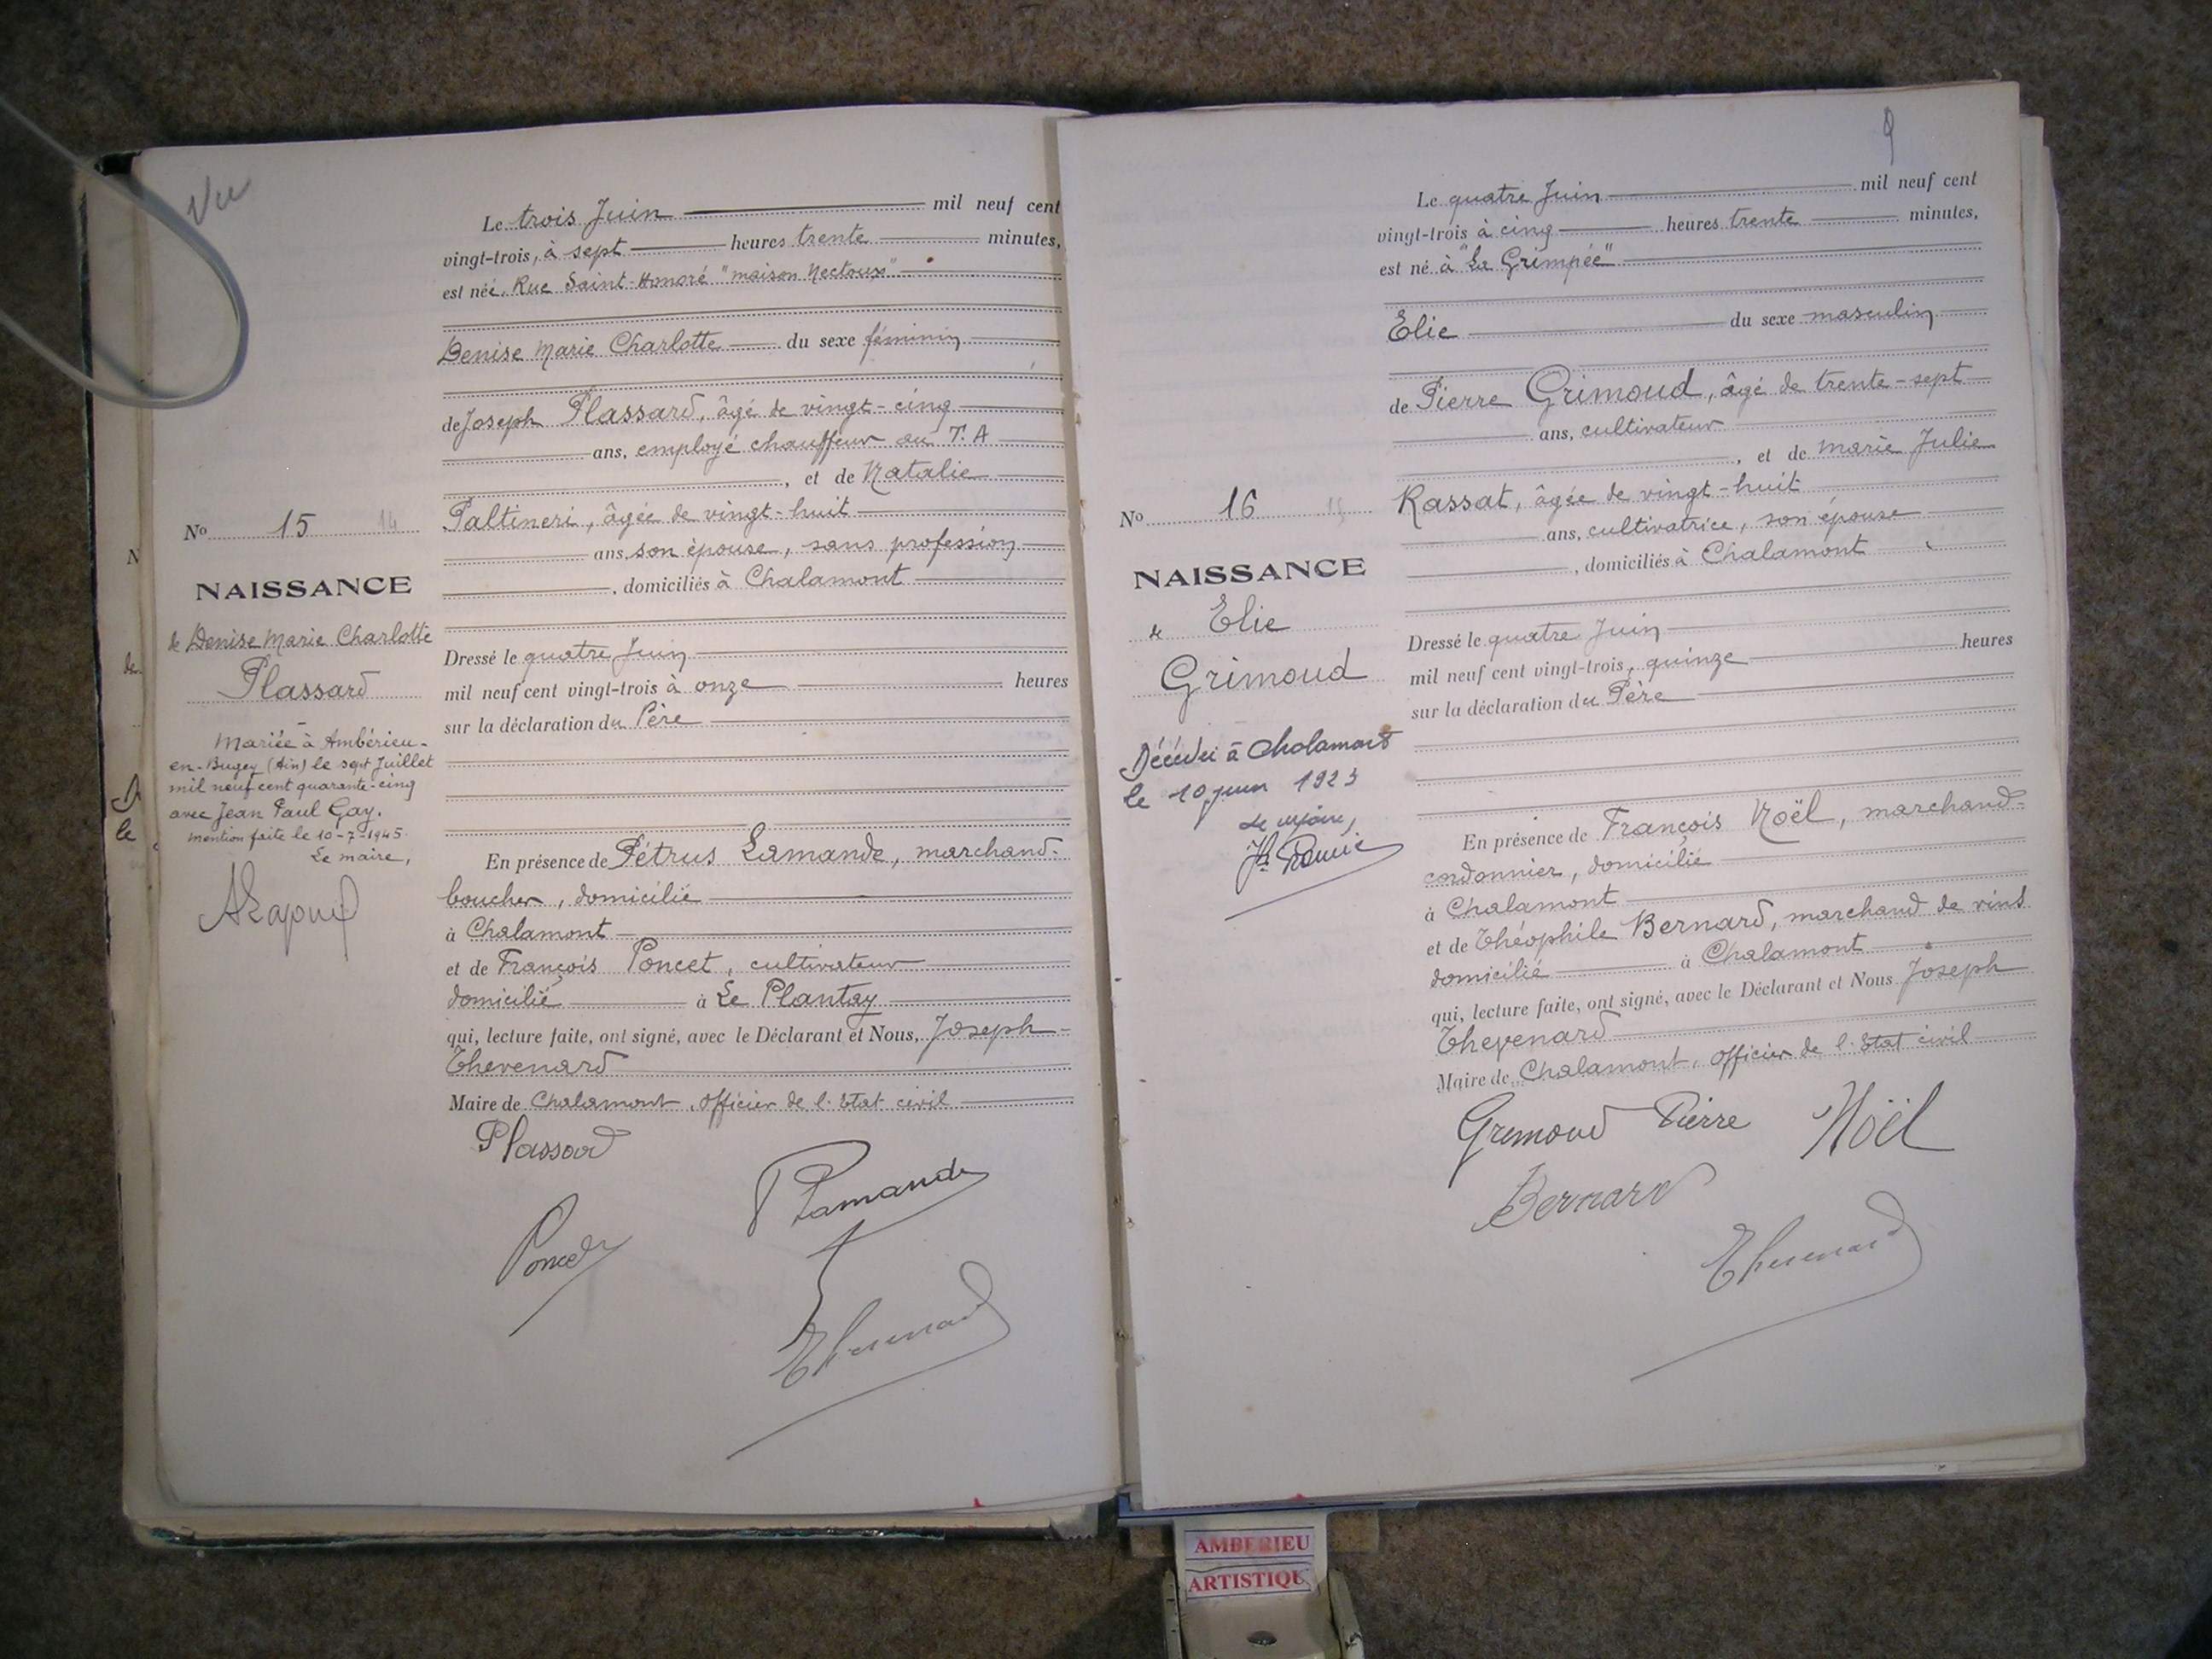 Vu
Le trois Juin mil neuf cent
vingt-trois, à sept heures trente minutes,
est née, Rue Saint-Honoré "maison Nectoux"
Denise Marie Charlotte du sexe féminin
de Joseph Plassard, âgé de vingt-cinq
ans, employé chauffeur au T. A
, et de Natalie
Paltineri, âgée de vingt-huit
ans, son épouse, sans profession
, domiciliés à Chalamont
Dressé le quatre Juin
mil neuf cent vingt-trois à onze heures
sur la déclaration du Père
En présence de Pétrus Lamande, marchand-
boucher, domicilié
à Chalamont
et de François Poncet, cultivateur
domicilié à Le Plantay
qui, lecture faite, ont signé, avec le Déclarant et Nous, Joseph
Thevenard
Maire de Chalamont, officier de l'Etat civil
Plassard
P Lamande
Poncet
Thevenard
No 15 14
NAISSANCE
de Denise Marie Charlotte
Plassard
Mariée à Ambérieu-
en-Bugey (Ain) le sept Juillet
mil neuf cent quarante-cinq
avec Jean Paul Gay.
Mention faite le 10-7-1945.
Le maire,
9
Le quatre Juin mil neuf cent
vingt-trois à cinq heures trente minutes,
est né à "La Grimpée"
Elie du sexe masculin
de Pierre Grimoud, âgé de trente-sept
ans, cultivateur
, et de Marie Julie
Rassat, âgée de vingt-huit
ans, cultivatrice, son épouse
, domiciliés à Chalamont
Dressé le quatre Juin
mil neuf cent vingt-trois, quinze heures
sur la déclaration du Père
En présence de François Noël, marchand-
cordonnier, domicilié
à Chalamont
et de Théophile Bernard, marchand de vins
domicilié à Chalamont
qui, lecture faite, ont signé, avec le Déclarant et Nous Joseph
Thevenard
Maire de Chalamont, officier de l'Etat civil
Grimoud Pierre Noël
Bernard
Thevenard
No 16 15
NAISSANCE
de Elie
Grimoud
Décédé à Chalamont
le 10 juin 1923
Le maire,
AMBERIEU
ARTISTIQUE